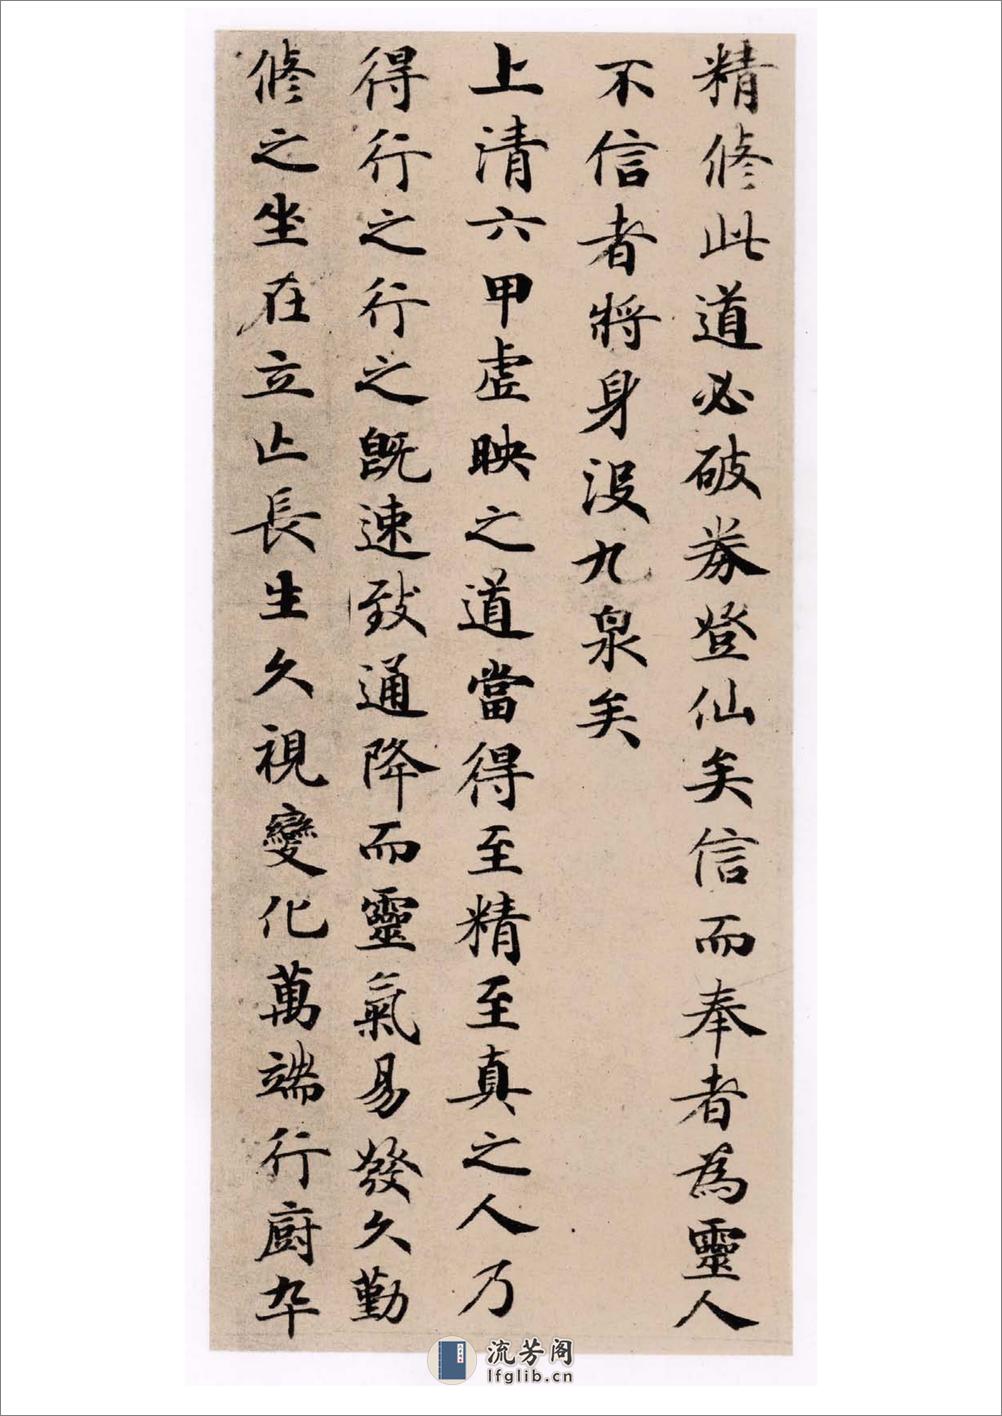 精脩此道必破券登仙矣信而奉者為靈人
不信者將身没九泉矣
上清六甲虚映之道當得至精至真之人乃
得行之行之既速致通降而靈氣易發久勤
脩之坐在立止長生久視變化萬端行廚卒
流芳阁
lfglib.cn